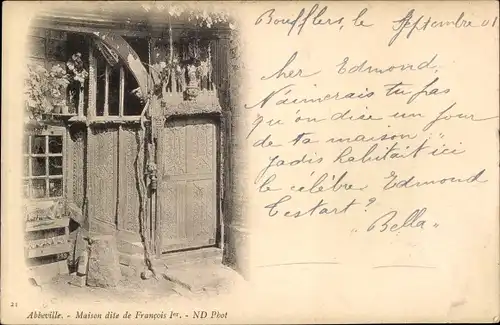 Boufflers, le Septembre 01
cher Edmond,
N'aimerais tu pas
qu'on dise un jour
de ta maison:
Jadis habitait ici
le célèbre Edmond
Lestart?
"Bella"
21
Abbeville. - Maison dite de François Ier. - ND Phot